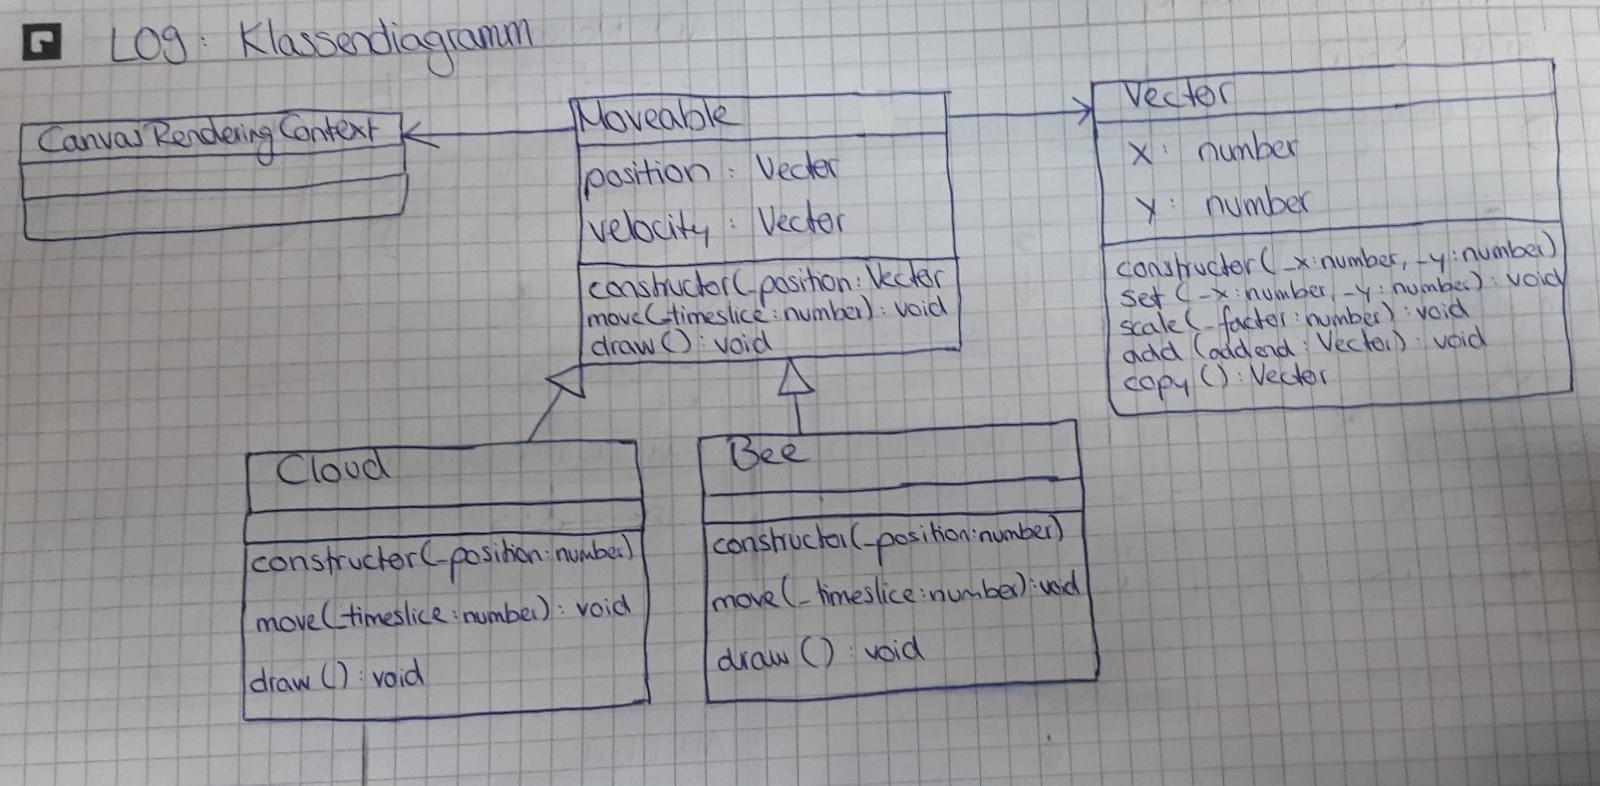 L09: Klassendiagramm
CanvasRenderingContext
Moveable
position: Vector
velocity: Vector
constructor(_position: Vector
move(_timeslice: number): void
draw(): void
Vector
x: number
y: number
constructor(_x:number, _y:number)
set (_x:number, _y:number): void
scale(_factor:number): void
add (addend: Vector): void
copy(): Vector
Cloud
constructor(_position:number)
move(_timeslice:number): void
draw(): void
Bee
constructor(_position:number)
move(_timeslice:number):void
draw(): void